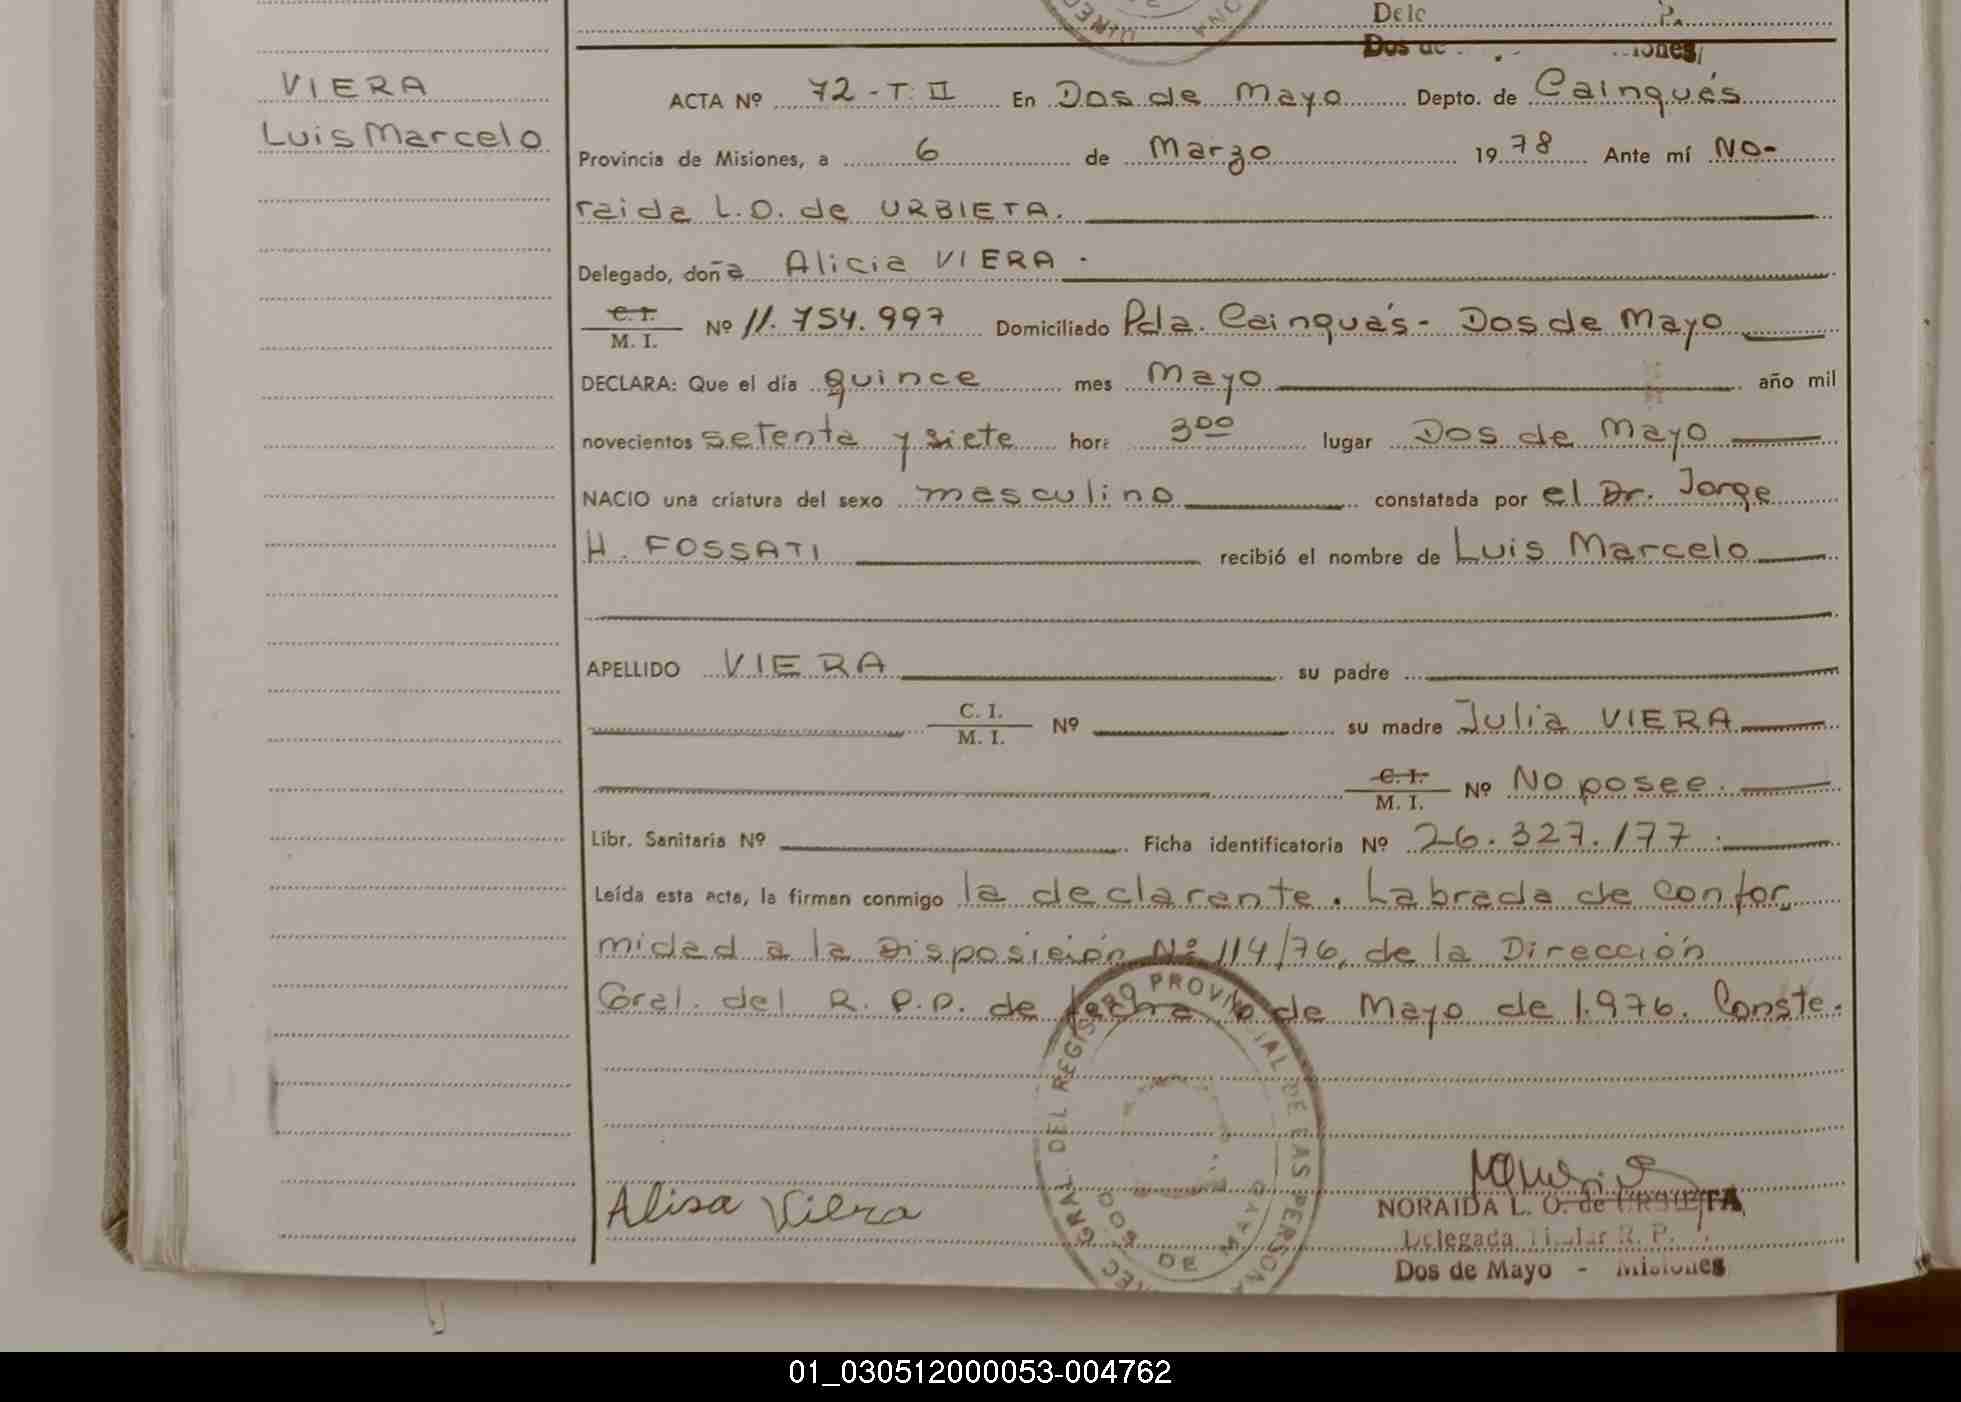 Dele P.
Dos de iones,
VIERA
Luis Marcelo
ACTA Nº 72 - T. II En Dos de Mayo Depto. de Cainguás
Provincia de Misiones, a 6 de Marzo 1978 Ante mí No-
raida L. O. de URBIETA.
Delegado, doña Alicia VIERA.
C. I.
M. I. Nº 11.754.997 Domiciliado Pda. Cainguás - Dos de Mayo
DECLARA: Que el día quince mes Mayo año mil
novecientos setenta y siete hora 3 00 lugar Dos de Mayo
NACIO una criatura del sexo masculino constatada por el Dr. Jorge
H. FOSSATI recibió el nombre de Luis Marcelo
APELLIDO VIERA su padre
C. I.
M. I. Nº su madre Julia VIERA
C. I.
M. I. Nº No posee.
Libr. Sanitaria Nº Ficha identificatoria Nº 26.327.177.
Leída esta acta, la firman conmigo la declarante. Labrada de confor
midad a la Disposición Nº 114/76, de la Dirección
Gral. del R. P. P. de fecha 6 de Mayo de 1.976. Conste.
GRAL. DEL REGISTRO PROVINCIAL DE LAS PERSONA
DOS DE MAYO
Alisa Viera
NORAIDA L. O. de URBIETA
Delegada Titular R. P.
Dos de Mayo - Misiones
01_030512000053-004762